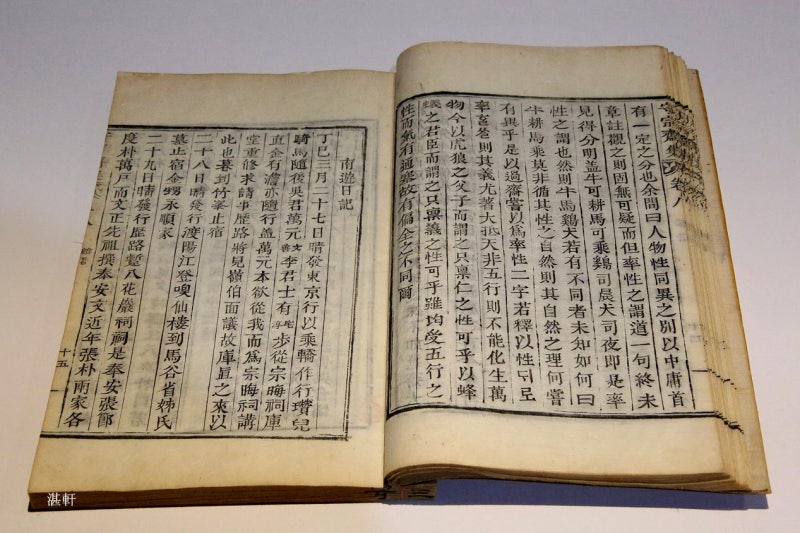 有一定之分也余問曰人物性同異之別以中庸首
章註觀之則固無可疑而但率性之謂道一句終未
見得分明盖牛可耕馬可乘鷄司晨犬司夜即是率
性之謂也然則牛馬鷄犬若有不同者未知如何曰
牛耕馬乘莫非循其性之自然則其自然之理何嘗
有異乎是以過齋嘗以爲率性二字若釋以性
則其義尤著大抵天非五行則不能化生萬
物今以虎狼之父子而謂之只稟仁之性可乎以蜂
蟻之君臣而謂之只稟義之性可乎雖均受五行之
性而氣有通塞故有偏全之不同爾
南遊日記
丁巳三月二十七日晴發東京行以乘轎作行瓚兒
騎馬隨後吳君萬元李君士有步從宗晦祠庫
直金有澹亦隨行盖萬元本欲從我而爲宗晦祠講
堂重修求請事歷路將見嶺伯面議故庫直之來以
此也暮到竹峯止宿
二十八日晴發行渡陽江登嗅仙樓到馬谷省姊氏
墓止宿金甥永順家
二十九日晴發行歷路鷲八花巖祠祠是奉安張節
度朴萬戶而文正先祖撰奉安文近年張朴兩家各
十五
湛軒